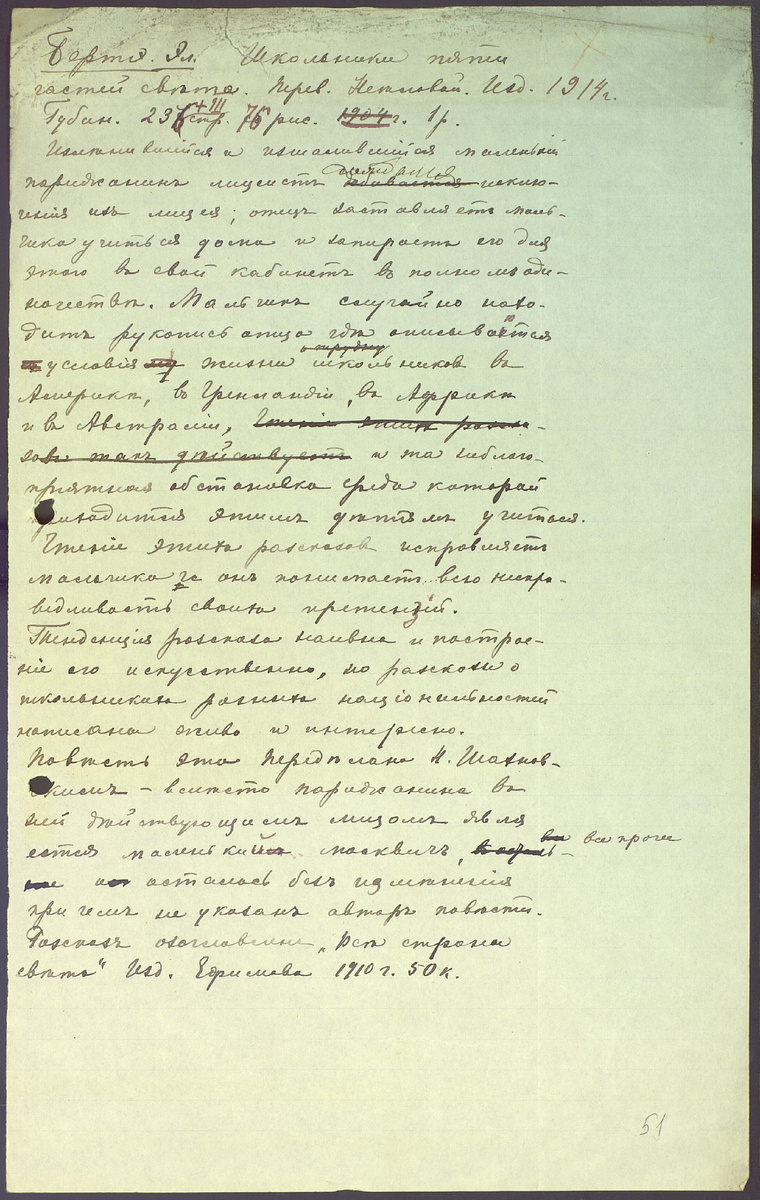 Бертэ. Эл. Школьники пяти
частей света. Перев. Изд. 1914 г.
Губин. 236 + III стр. 76 рис. 1904 г. 1 р.
и изшалившійся маленькій
парижанинъ лицеистъ исклю-
ченія изъ лицея; отецъ заставляетъ маль-
чика учиться дома и запираетъ его для
этого въ свой кабинетъ въ полномъ оди-
ночествѣ. Мальчикъ случайно нахо-
дитъ рукопись отца гдѣ описываются
условія жизни школьниковъ въ
Америкѣ, въ Гренландіи, въ Африкѣ
и въ Австраліи, Чтеніе этихъ разска-
зовъ такъ дѣйствуетъ и та небласо-
пріятная обстановка среди которой
приходится этимъ дѣтямъ учиться.
Чтеніе этихъ разсказовъ исправляетъ
мальчика и онъ понимаетъ всю неспра-
ведливость своихъ претензій.
Тенденція разсказа наивна и построе-
ніе его искусственно, но разсказы о
школьникахъ разныхъ національностей
написаны живо и интересно.
Повѣсть эта передѣлана Н. Шахнов-
скимъ – вмѣсто парижанина въ
ней дѣйствующимъ лицомъ явля
ется маленькій москвичъ, все проче
осталось безъ измѣненія
при чемъ не указанъ авторъ повѣсти.
Разсказъ озаглавленъ „Всѣ страны
свѣта" Изд. Ефимова 1910 г. 50 к.
51